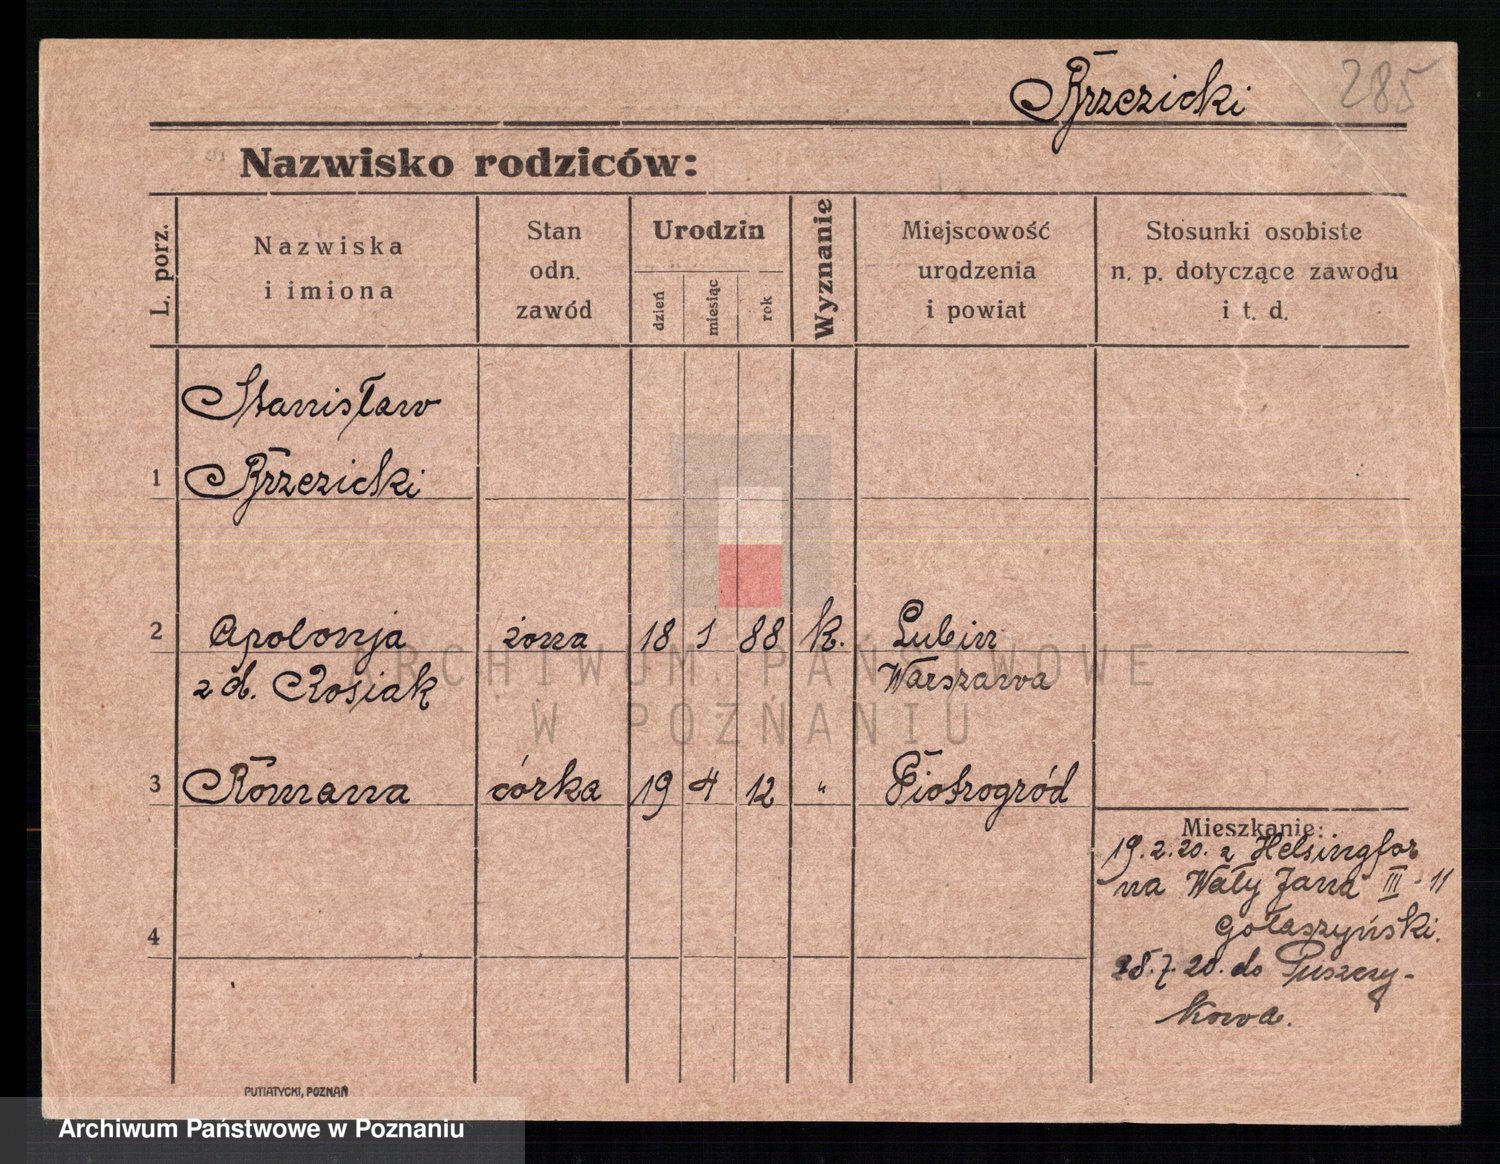 Brzezicki 285
Nazwisko rodziców:
L. porz.
Nazwiska
i imiona
Stan
odn.
zawód
Urodzin
dzień
miesiąc
rok
Wyznanie
Miejscowość
urodzenia
i powiat
Stosunki osobiste
n. p. dotyczące zawodu
i t. d.
Stanisław
1 Brzezicki
2 Apolonja żona 18 1 88 k. Lubin
z d. Rosiak Warszawa
3 Romana córka 19 4 12 " Piotrogród
Mieszkanie:
19.2.20. z Helsingfor
na Wały Jana III - 11
Gołaszyński.
28.7.20. do Puszczy-
kowa.
4
PUTIATYCKI, POZNAŃ
ARCHIWUM PAŃSTWOWE
W POZNANIU
Archiwum Państwowe w Poznaniu